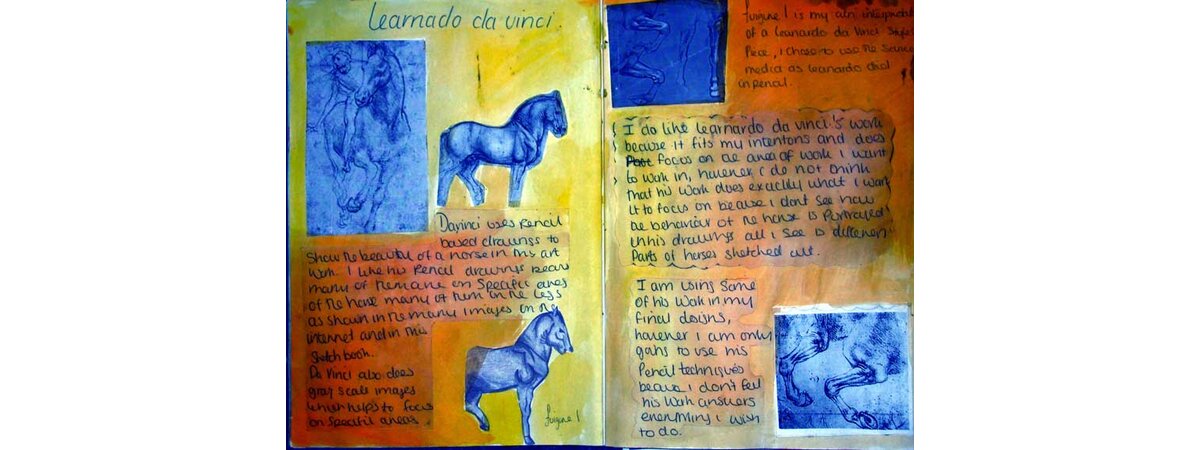 learnado da vinci
Davinci uses Pencil
based drawings to
Show the beautiful of a horse in this art
work. I like his Pencil drawings
many of them are on Specific areas
of the horse many of them on the legs
as shown in the many images on the
internet and in this
Sketch book.
Da Vinci also does
gray scale images
which helps to focus
on Specific areas.
fuigure 1
fuigure 1 is my own
of a leanardo da Vinci Styled
Piece, I chose to use the same
media as leanardo did
in Pencil.
I do like learnardo da vinci's work
because it fits my intentons and does
focus on the area of work I want
to work in, however I do not think
that his work does exactly what I want
it to focus on because I dont see how
the behavior of the horse is Portrayed
in his drawings all I see is different
Parts of horses sketched out.
I am using some
of his work in my
final designs,
however I am only
going to use his
Pencil techniques
because I don't feel
his work answers
everything I wish
to do.